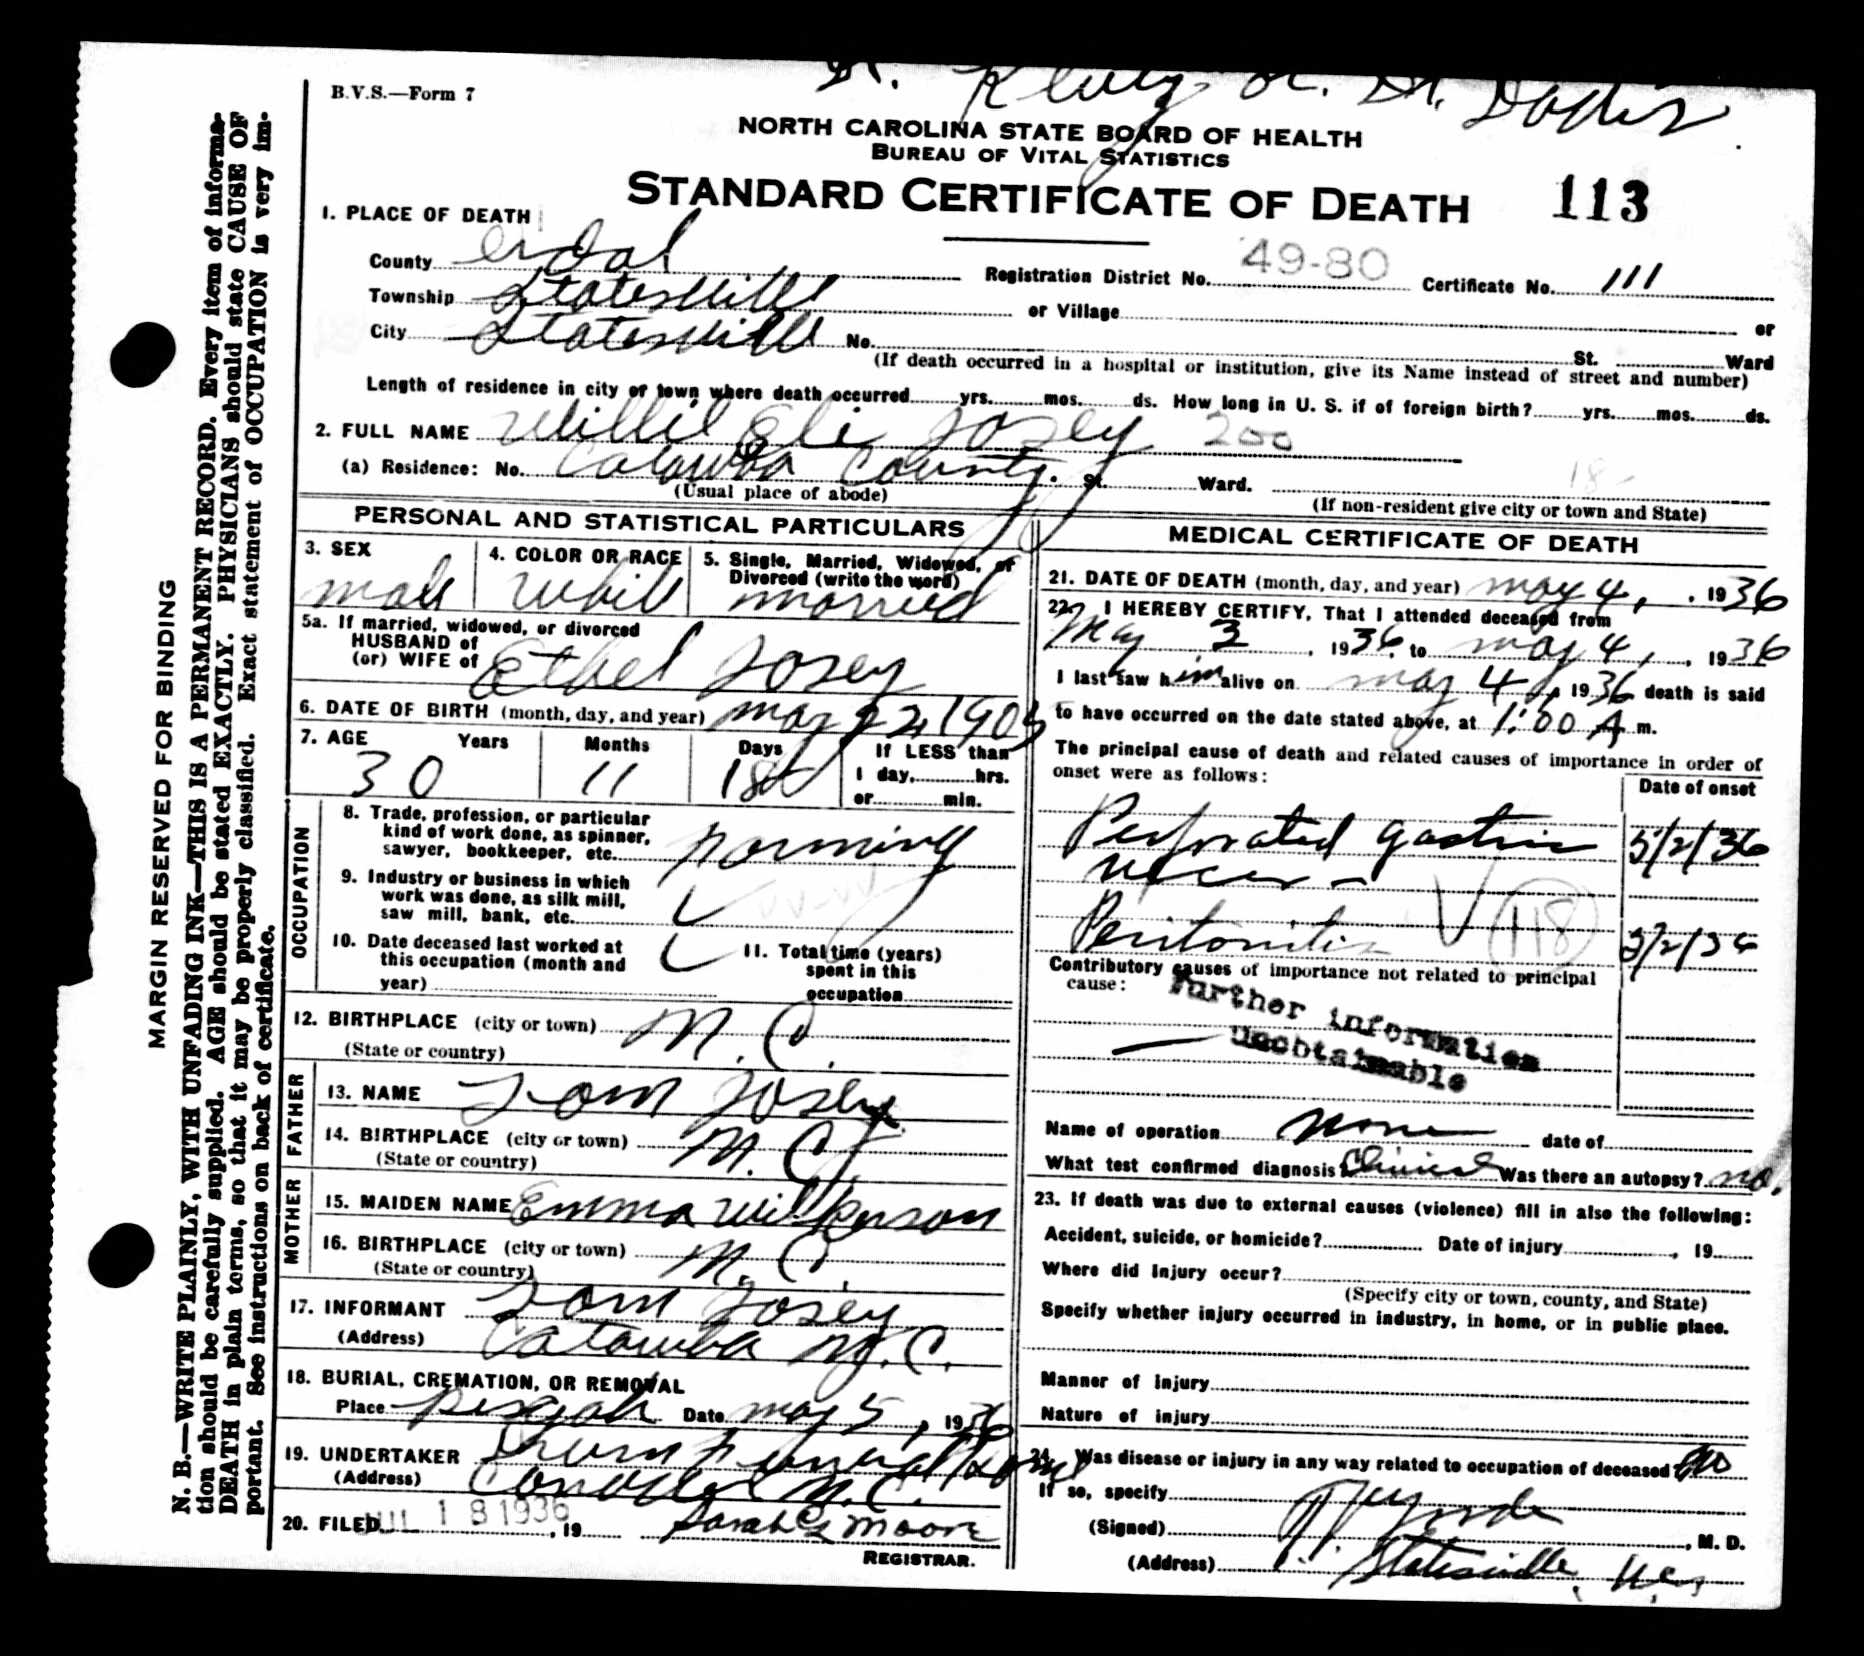 Dr.
B.V.S.—Form 7
NORTH CAROLINA STATE BOARD OF HEALTH
BUREAU OF VITAL STATISTICS
STANDARD CERTIFICATE OF DEATH 113
1. PLACE OF DEATH
County Iredell Registration District No. 49-80 Certificate No. 111
Township Statesville or Village or
City Statesville No. St. Ward
(If death occurred in a hospital or institution, give its Name instead of street and number)
Length of residence in city or town where death occurred yrs. mos. ds. How long in U. S. if of foreign birth? yrs. mos. ds.
2. FULL NAME Willie Eli Josey 200
(a) Residence: No. Catawba County. St. Ward.
(Usual place of abode) (If non-resident give city or town and State)
PERSONAL AND STATISTICAL PARTICULARS
3. SEX male
4. COLOR OR RACE White
5. Single, Married, Widowed, or Divorced (write the word) married
5a. If married, widowed, or divorced
HUSBAND of
(or) WIFE of Ethel Josey
6. DATE OF BIRTH (month, day, and year) may 1905
7. AGE Years 30 Months 11 Days 18 If LESS than
1 day, hrs.
or min.
OCCUPATION
8. Trade, profession, or particular
kind of work done, as spinner,
sawyer, bookkeeper, etc. Farming
9. Industry or business in which
work was done, as silk mill,
saw mill, bank, etc.
10. Date deceased last worked at
this occupation (month and
year)
11. Total time (years)
spent in this
occupation
12. BIRTHPLACE (city or town) N. C.
(State or country)
FATHER
13. NAME Tom Josey
14. BIRTHPLACE (city or town) N. C.
(State or country)
MOTHER
15. MAIDEN NAME Emma Wilkerson
16. BIRTHPLACE (city or town) N. C.
(State or country)
17. INFORMANT Tom Josey
(Address) Catawba N. C.
18. BURIAL, CREMATION, OR REMOVAL
Place Pisgah Date may 5, 1936
19. UNDERTAKER Drum Funeral Home
(Address) Conover N. C.
20. FILED JUL 18 1936, 19 Sarah C Moore
REGISTRAR.
MEDICAL CERTIFICATE OF DEATH
21. DATE OF DEATH (month, day, and year) may 4, 1936
22. I HEREBY CERTIFY, That I attended deceased from
May 3, 1936, to may 4, 1936
I last saw him alive on may 4, 1936 death is said
to have occurred on the date stated above, at 1:00 A m.
The principal cause of death and related causes of importance in order of
onset were as follows: Date of onset
Perforated gastric 5/2/36
ulcer
Peritonitis 118 5/2/36
Contributory causes of importance not related to principal
cause:
Further information
unobtainable
Name of operation none date of
What test confirmed diagnosis? Clinical Was there an autopsy? no.
23. If death was due to external causes (violence) fill in also the following:
Accident, suicide, or homicide? Date of injury , 19
Where did Injury occur?
(Specify city or town, county, and State)
Specify whether injury occurred in industry, in home, or in public place.
Manner of injury
Nature of injury
24. Was disease or injury in any way related to occupation of deceased no
If so, specify
(Signed) , M. D.
(Address) Statesville, N.C.
MARGIN RESERVED FOR BINDING
N. B.—WRITE PLAINLY, WITH UNFADING INK—THIS IS A PERMANENT RECORD. Every item of informa-
tion should be carefully supplied. AGE should be stated EXACTLY. PHYSICIANS should state CAUSE OF
DEATH in plain terms, so that it may be properly classified. Exact statement of OCCUPATION is very im-
portant. See instructions on back of certificate.